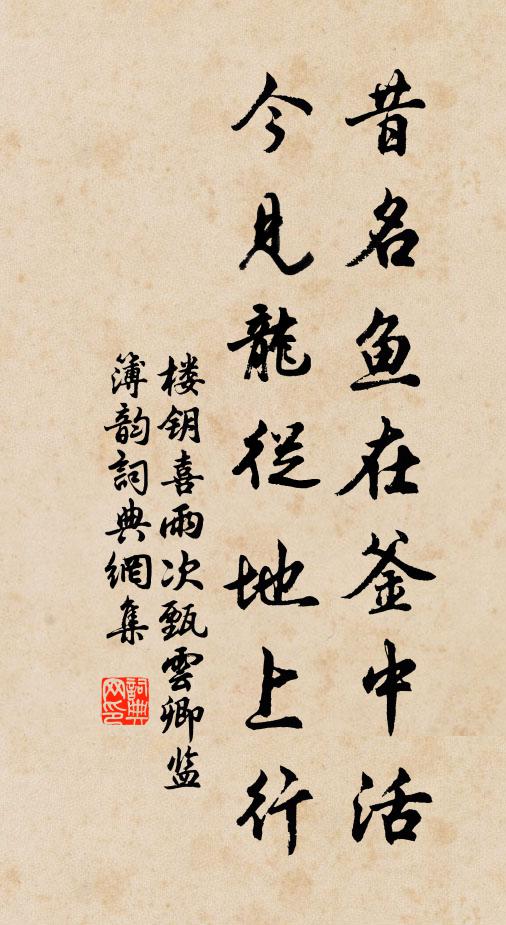 昔名鱼在釜中活
今見龍從地上行
楼钥喜雨次甄雲卿监
簿韵詞典網集
詞典
网印